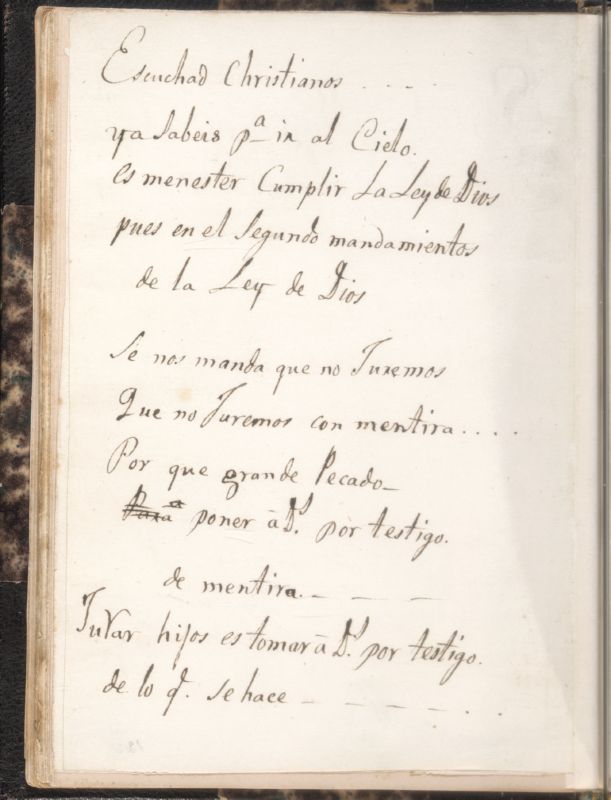 Escuchad Christianos . . . .
ya sabeis pª ir al Cielo.
es menester Cumplir La Ley de Dios
pues en el segundo mandamientos
de la Ley de Dios
Se nos manda que no Juremos
Que no Juremos con mentira . . . .
Por que grande Pecado_
poner â Dˢ. por testigo.
de mentira. _ _ _ _
JuRar hijos es tomar â Dˢ. por testigo.
de lo q̃. se hace _ _ _ _ _ . .